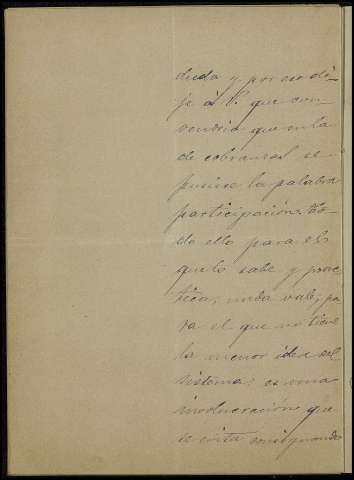 duda y por eso di-
je à V. que con-
vendria que en la
de cobranzas se
pusiera la palabra
participación. To-
do ello para el
que lo sabe y prac-
tica, nada vale; pa
ra el que no tiene
la menor idea del
sistema, es una
involucración que
se evita consignando